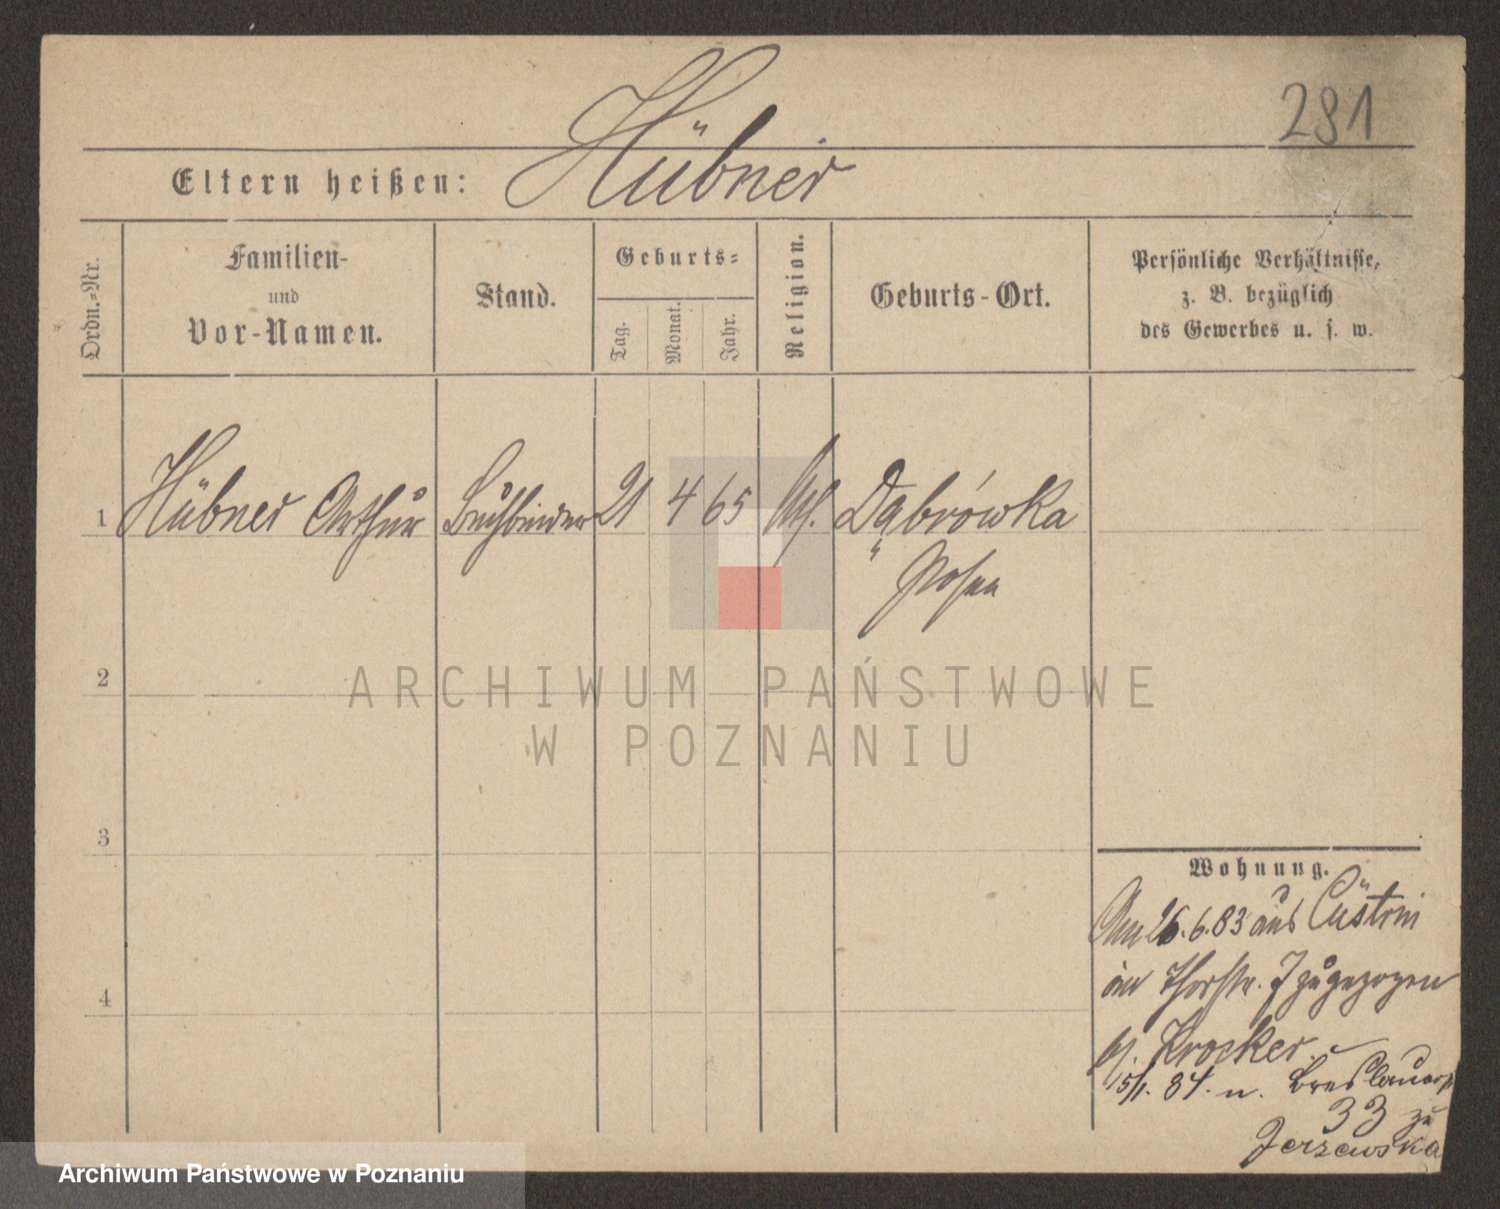 281
Hübner
Eltern heißen:
Ordn.-Nr.
Familien-
und
Vor-Namen.
Stand.
Geburts-
Tag.
Monat.
Jahr.
Religion.
Geburts-Ort.
Persönliche Verhältnisse,
z. B. bezüglich
des Gewerbes u. s. w.
1 Hübner Arthur Buchbinder 21 4 65 Dąbrówka
Posen
2
ARCHIWUM PAŃSTWOWE
W POZNANIU
3
4
Wohnung.
26.6.83 aus Cüstrin
Thorstr. zugezogen
b. Krocker.
15/1. 84. n. Breslauerstr
33 zu
Jerzewska
Archiwum Państwowe w Poznaniu